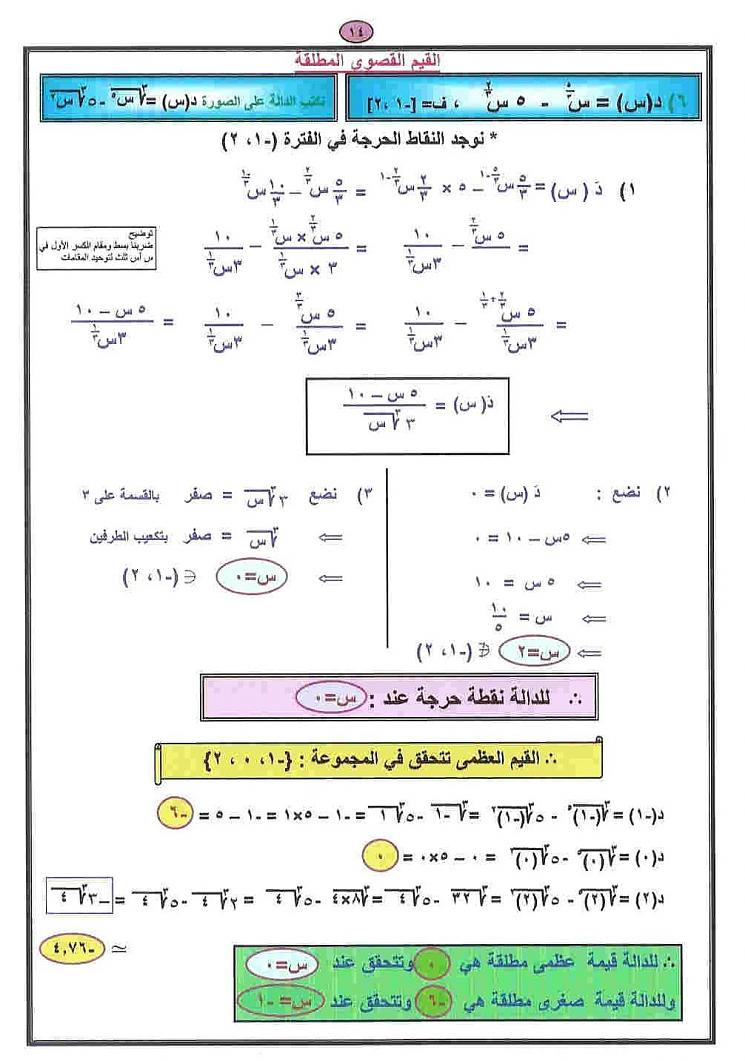 ١٤
القيم القصوى المطلقة
٦) د(س) = س^(٥/٣) - ٥ س^(٢/٣) ، ف= [-١ ،٢]
نكتب الدالة على الصورة د(س) =∛س٥ -٥∛س٢
* نوجد النقاط الحرجة في الفترة (-١، ٢)
١) دَ ( س) = ٥/٣ س^(٥/٣-١) - ٥ × ٢/٣ س^(٢/٣-١) = ٥/٣ س^(٢/٣) - ١٠/٣ س^(-١/٣)
= ٥ س^(٢/٣)/٣ - ١٠/٣س^(١/٣) = ٥ س^(٢/٣) × س^(١/٣)/٣ × س^(١/٣) - ١٠/٣س^(١/٣)
توضيح
ضربنا بسط ومقام الكسر الأول في
س أس ثلث لتوحيد المقامات
= ٥ س^(٢/٣+١/٣)/٣س^(١/٣) - ١٠/٣س^(١/٣) = ٥ س^(٣/٣)/٣س^(١/٣) - ١٠/٣س^(١/٣) = ٥ س – ١٠/٣س^(١/٣)
⇐ دَ( س) = ٥ س – ١٠/٣ ∛س
٢) نضع : دَ (س) = ٠
⇐ ٥س – ١٠ = ٠
⇐ ٥ س = ١٠
⇐ س = ١٠/٥
⇐ س=٢ ∌ (-١، ٢)
٣) نضع ٣ ∛س = صفر بالقسمة على ٣
⇐ ∛س = صفر بتكعيب الطرفين
⇐ س=٠ ∋ (-١، ٢)
∴ للدالة نقطة حرجة عند : س=٠
∴ القيم العظمى تتحقق في المجموعة : {-١، ٠ ، ٢}
د(-١) =∛(-١)٥ - ٥∛(-١)٢ =∛-١ -٥∛١ = -١ - ٥×١ = -١ – ٥ = -٦
د(٠) =∛(٠)٥ -٥∛(٠)٢ = ٠ – ٥×٠ = ٠
د(٢) =∛(٢)٥ - ٥∛(٢)٢ =∛٣٢ -٥∛٤ =∛٨×٤ -٥∛٤ = ٢∛٤ -٥∛٤ = –٣∛٤
≃ -٤,٧٦
∴ للدالة قيمة عظمى مطلقة هي ٠ وتتحقق عند س=٠
وللدالة قيمة صغرى مطلقة هي -٦ وتتحقق عند س= -١